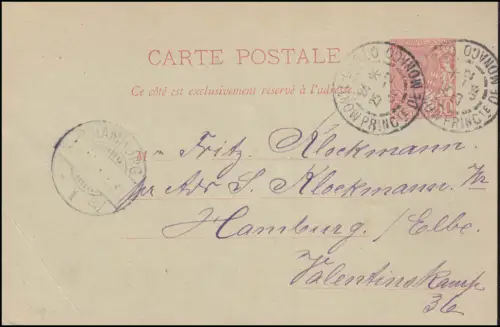 CARTE POSTALE
Ce côté est exclusivement réservé à l'adresse
PRINCTE DE MONACO
PRINCTE DE MONACO
HAMBURG
M Fritz Klockmann.
per Adr S. Klockmann.
Hamburg. / Elbe.
Valentinskamp
36